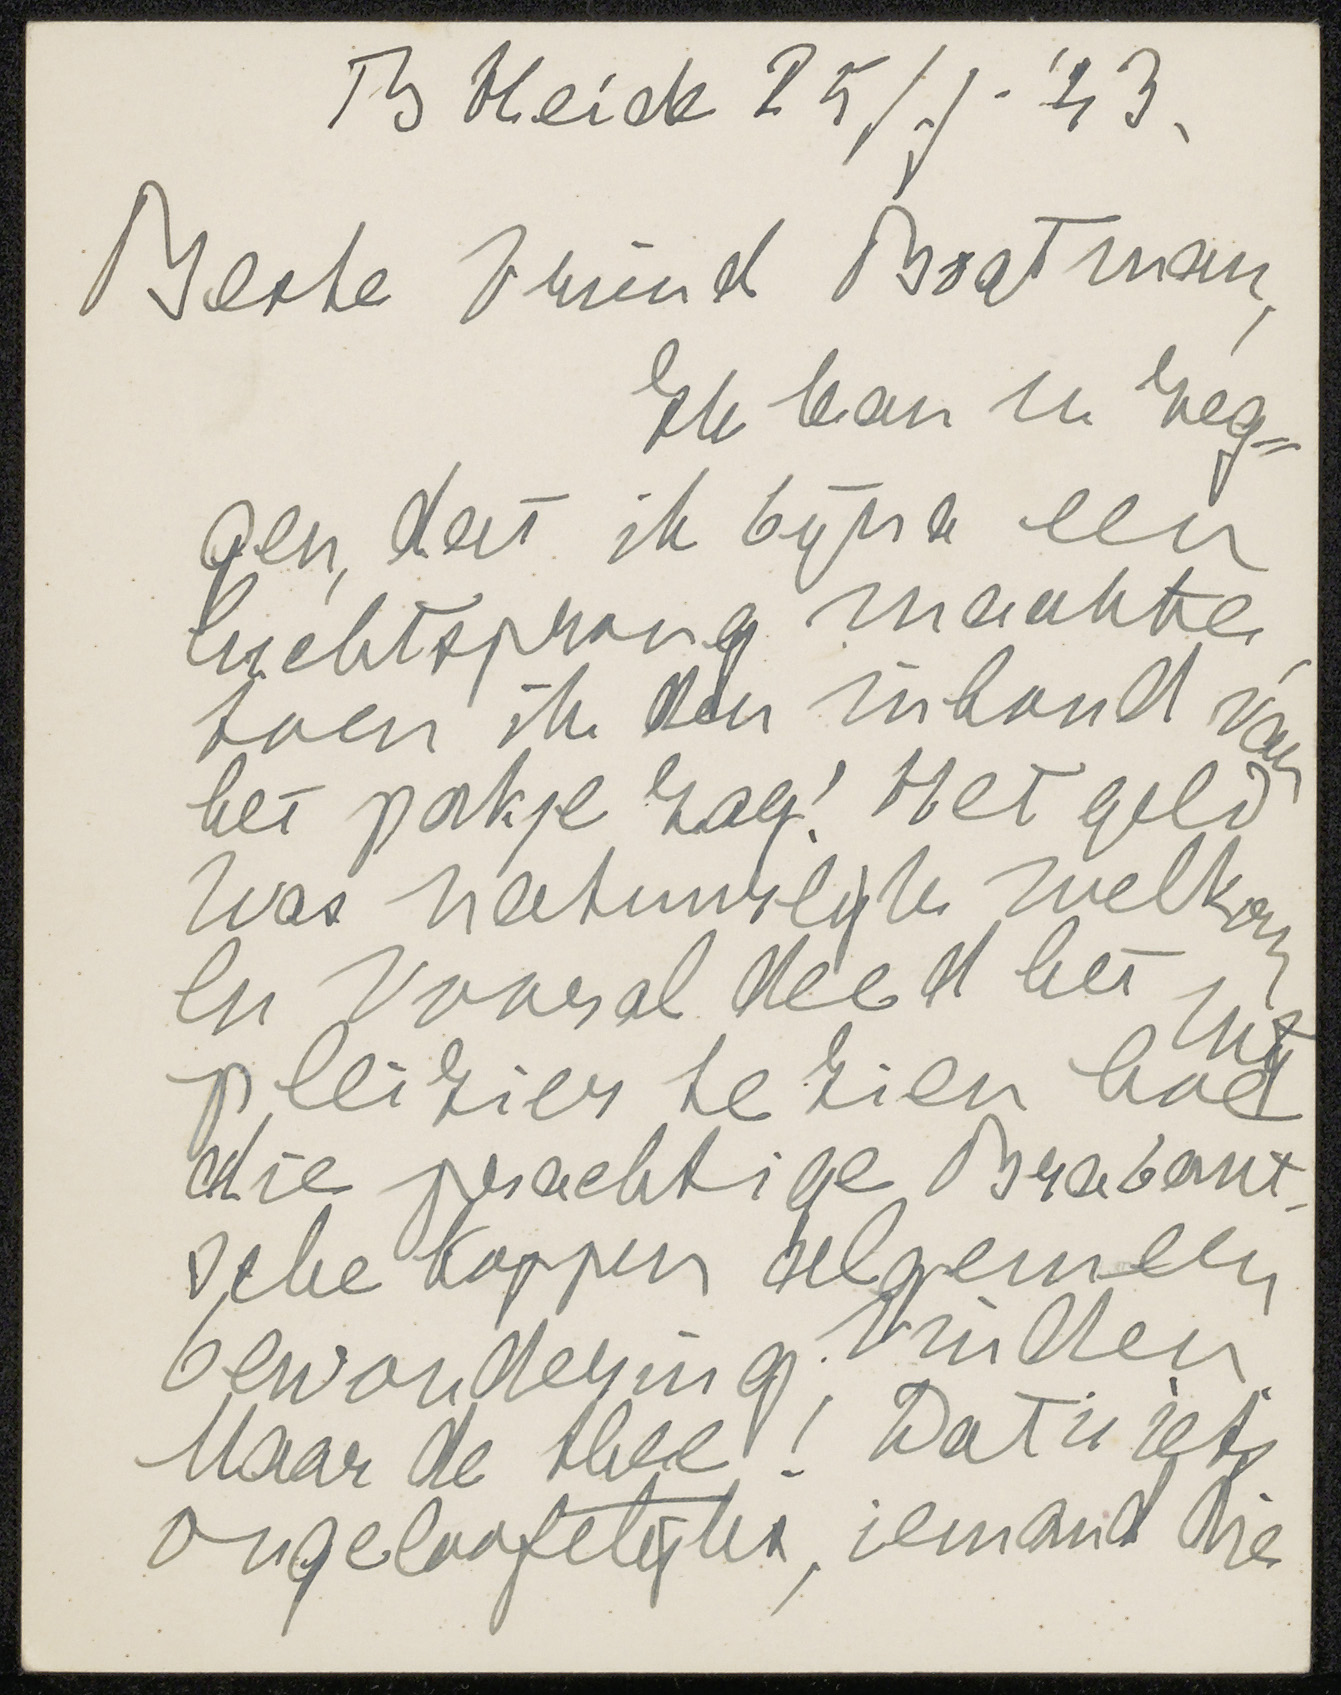 B Heide 25/7-'43.
Beste Vriend Boatman,
Ik kan u zeg=
gen, dat ik byna een
luchtsprong maakte
toen ik den inhoud van
het pakje zag! Het geld
was natuurlyk welkom
en vooral deed het my
pleizier te zien hoe
die prachtige Brabant-
sche koppen algemeen
bewondering vinden.
Maar de thee! Dat is iets
ongelooftelyks, iemand die